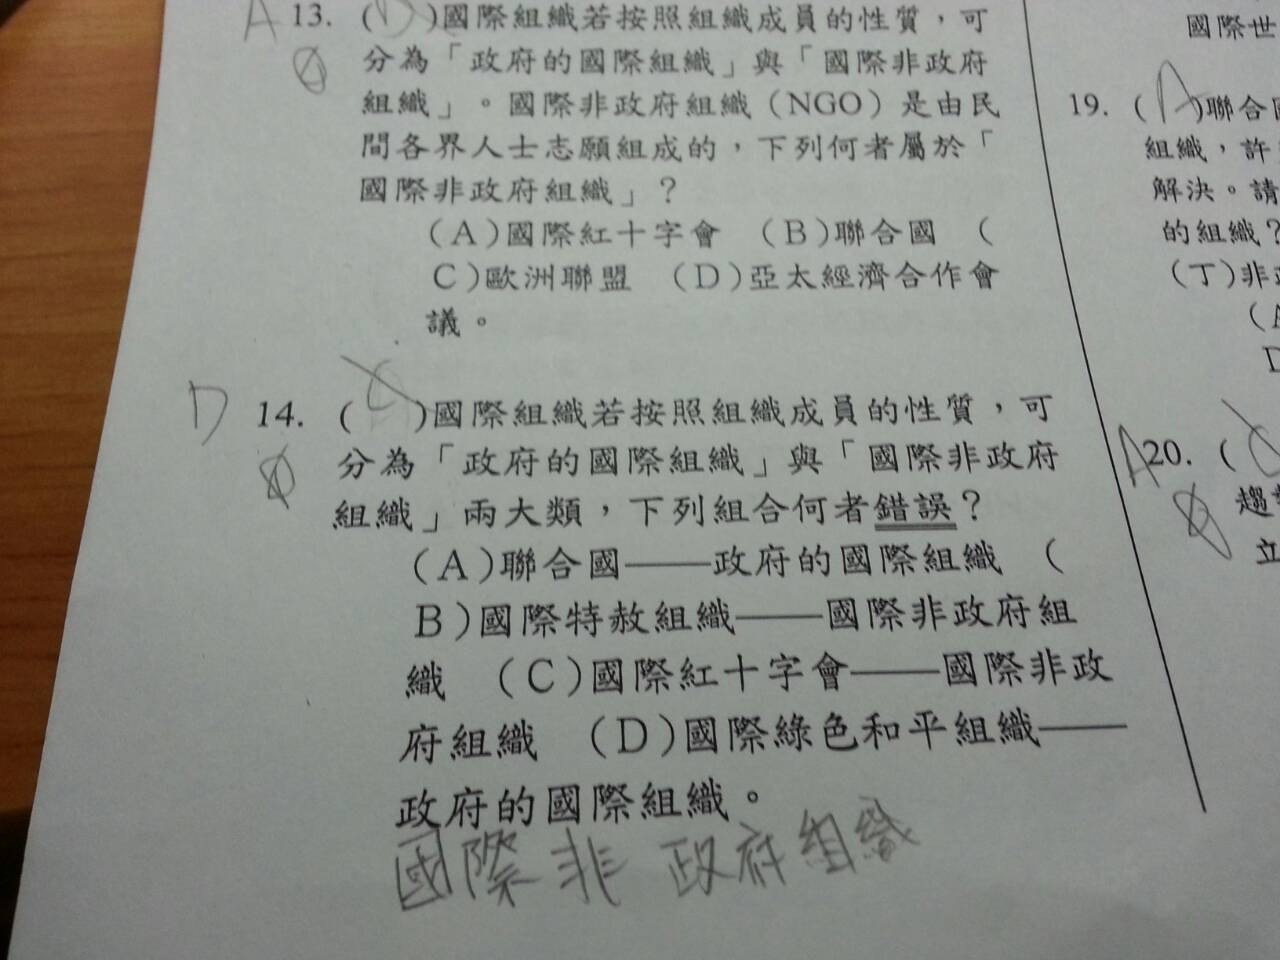 A 13. ( D )國際組織若按照組織成員的性質，可
分為「政府的國際組織」與「國際非政府
組織」。國際非政府組織（NGO）是由民
間各界人士志願組成的，下列何者屬於「
國際非政府組織」？
(A)國際紅十字會 (B)聯合國 (
C)歐洲聯盟 (D)亞太經濟合作會
議。
D 14. ( C )國際組織若按照組織成員的性質，可
分為「政府的國際組織」與「國際非政府
組織」兩大類，下列組合何者錯誤？
(A)聯合國——政府的國際組織 (
B)國際特赦組織——國際非政府組
織 (C)國際紅十字會——國際非政
府組織 (D)國際綠色和平組織——
政府的國際組織。
國際非政府組織
國際世
19. ( A )聯合
組織，許
解決。請
的組織？
(丁)非
(A
D
A 20. ( C
趨
立